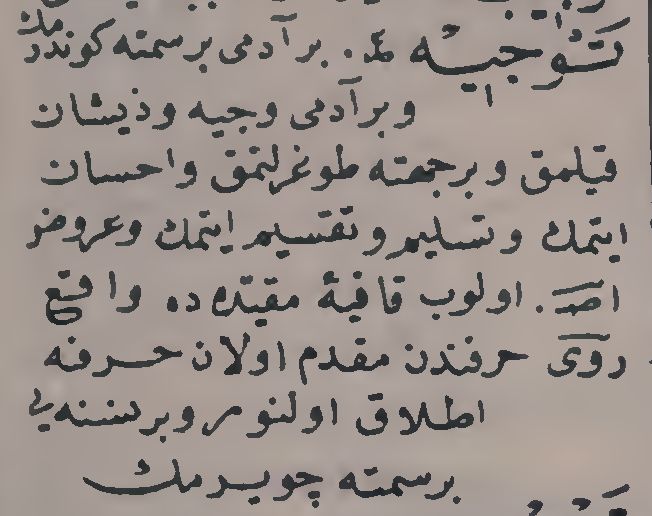 تَوْجِيْه مص. بر آدمى بر سمته كوندرمك
وبر آدمى وجيه وذيشان
قيلمق وبر جهته طوغرلتمق واحسان
ايتمك وتسليم وتقسيم ايتمك وعروض
اصـ. اولوب قافيۀ مقيده ده واقع
روى حرفندن مقدم اولان حرفه
اطلاق اولنور وبر نسنه يى
بر سمته چويرمك